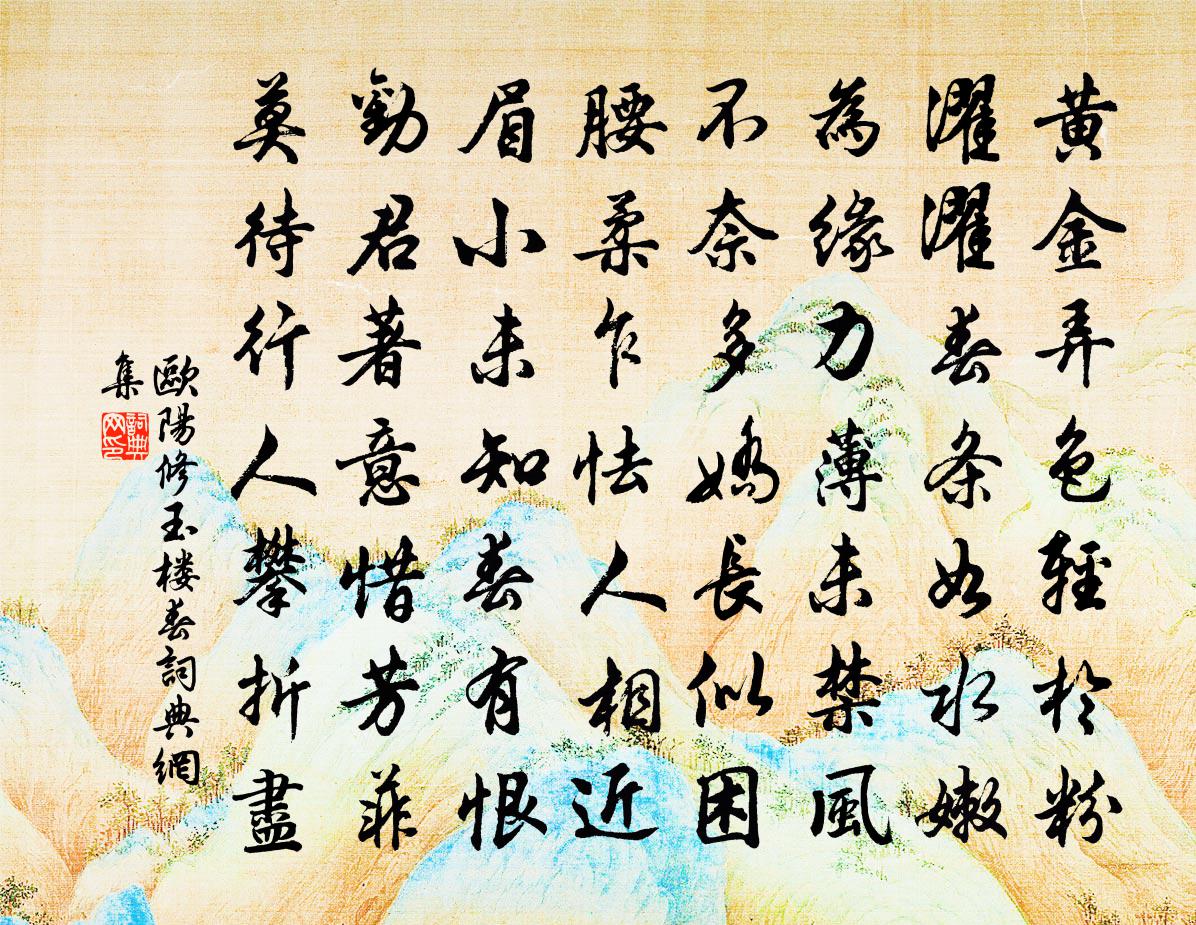 黄金弄色輕於粉
濯濯春条如水嫩
為緣力薄未禁風
不奈多嬌長似困
腰柔乍怯人相近
眉小未知春有恨
勸君著意惜芳菲
莫待行人攀折盡
歐陽修玉楼春詞典網
集
詞典网印